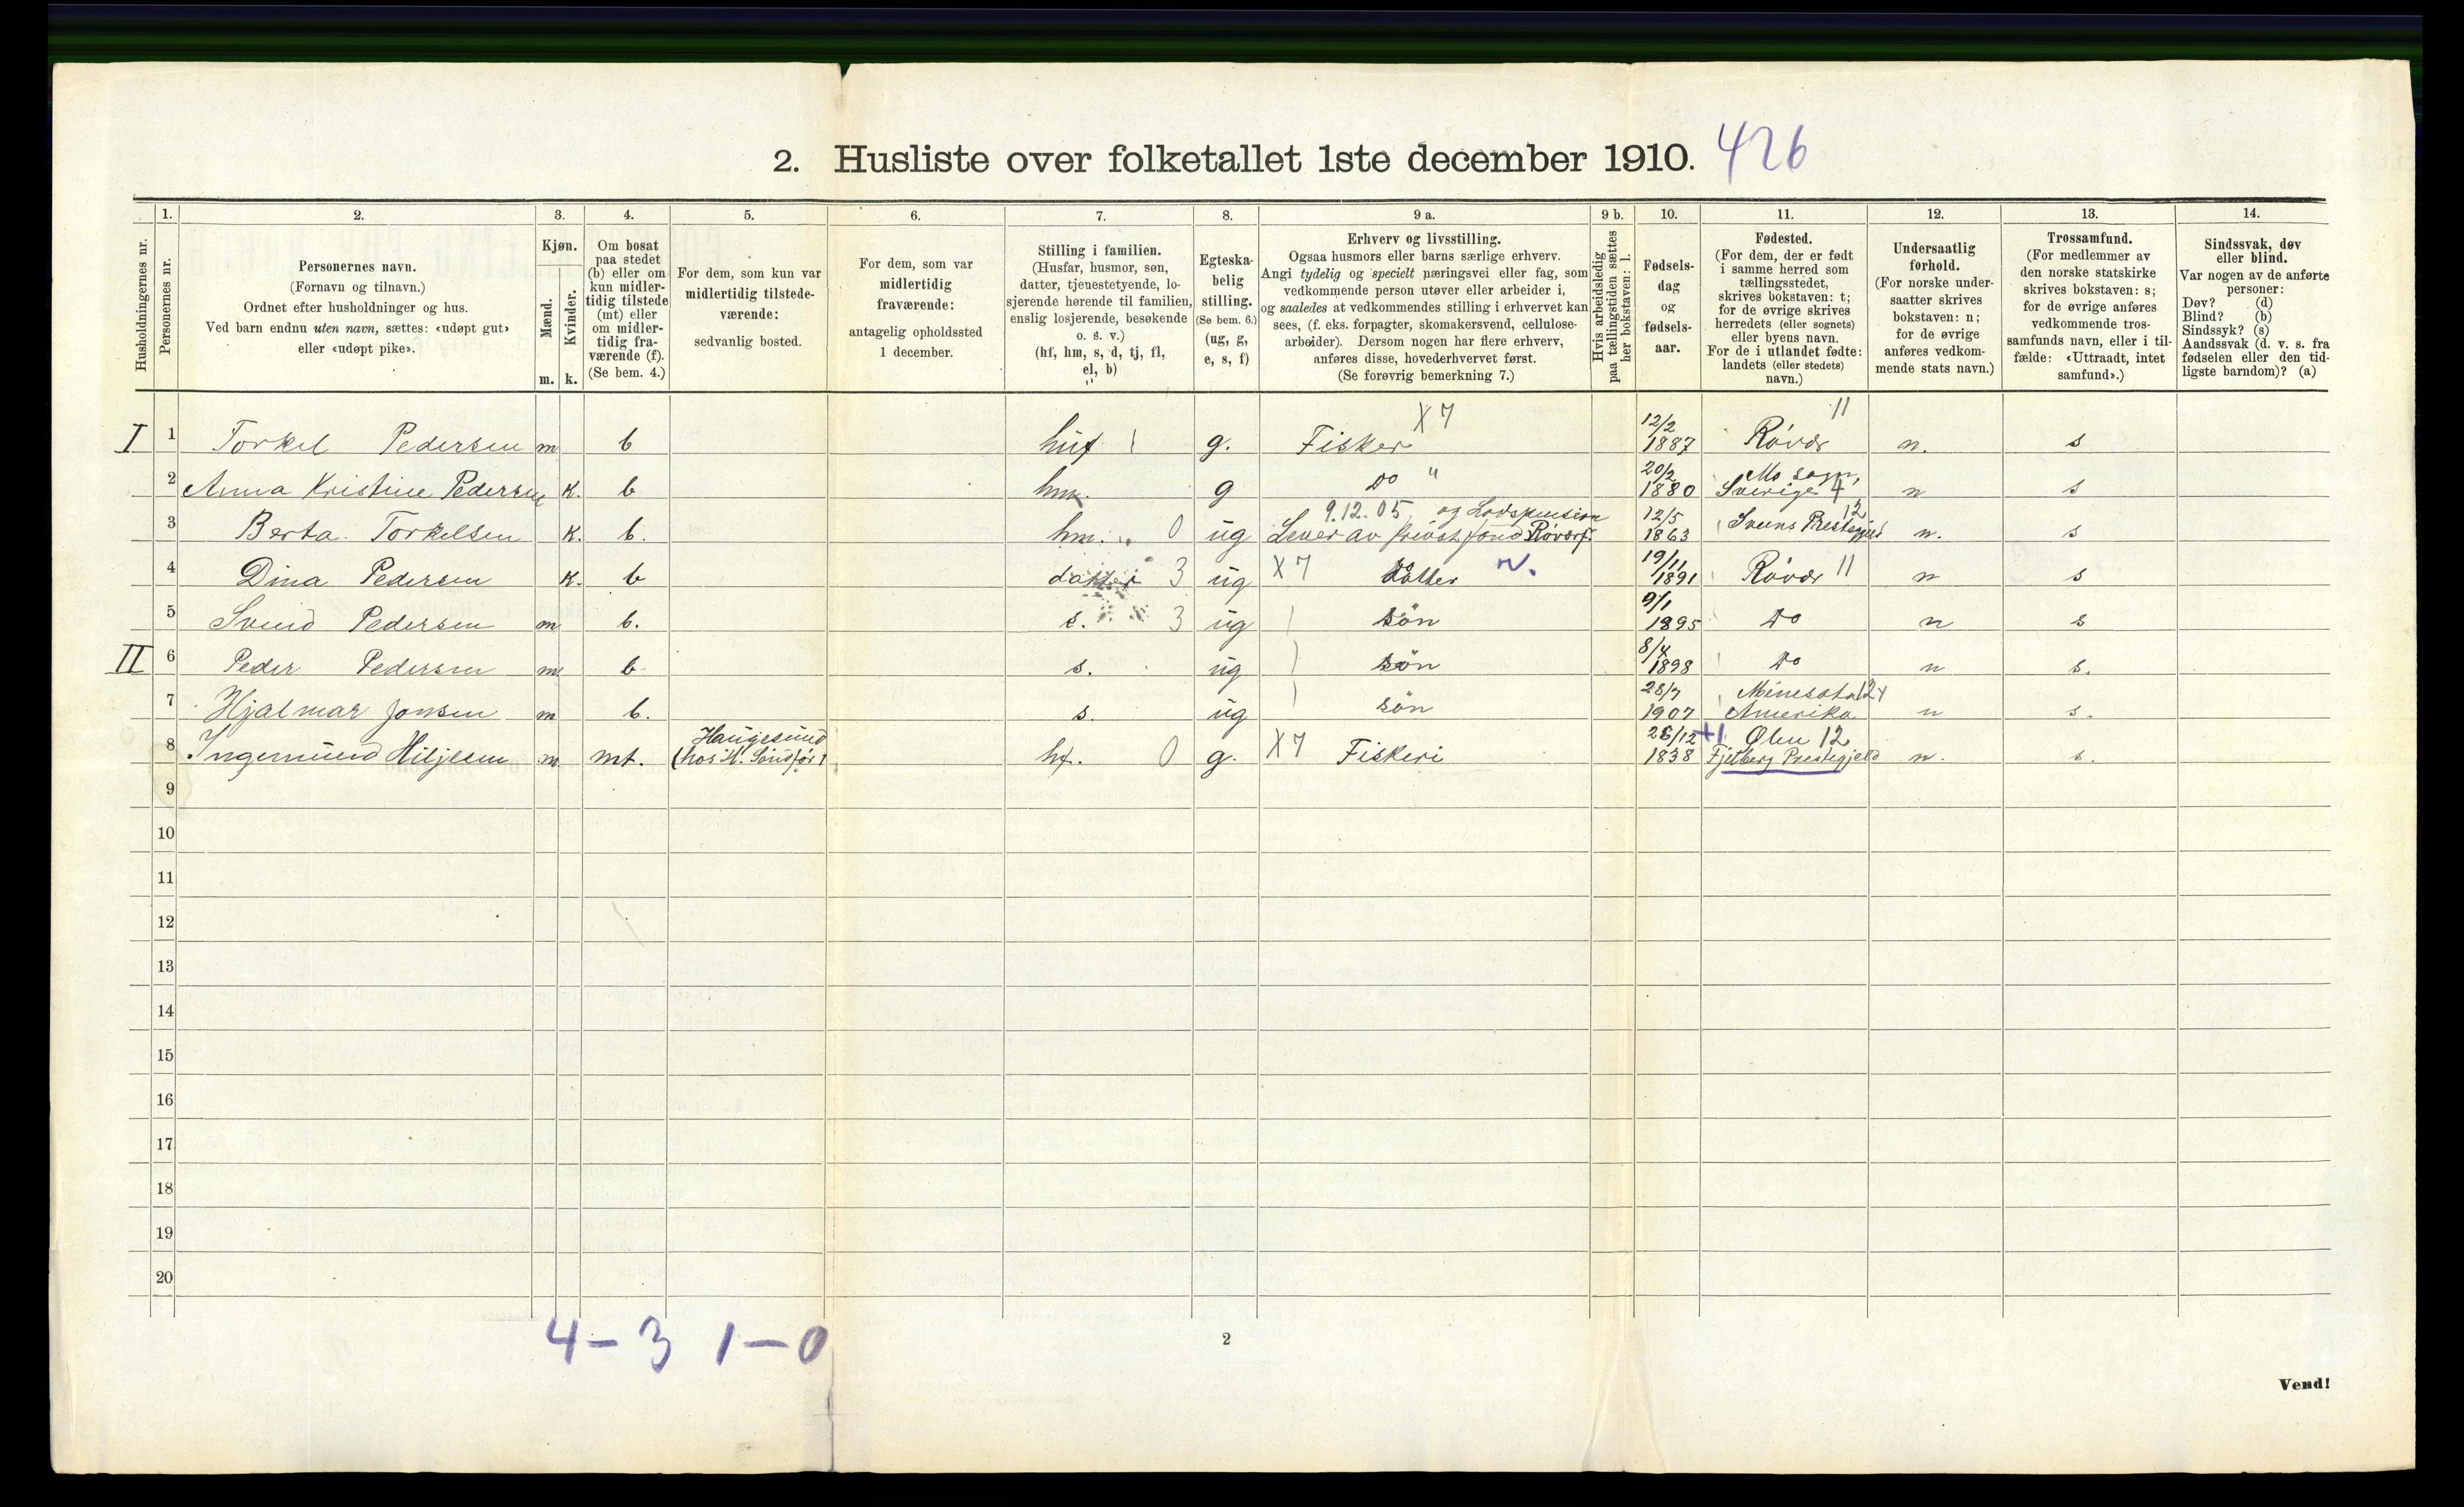 2. Husliste over folketallet 1ste december 1910. 426
1. 2. 3. 4. 5. 6. 7. 8. 9 a. 9 b. 10. 11. 12. 13. 14.
Husholdningernes nr.
Personernes nr.
Personernes navn.
(Fornavn og tilnavn.)
Ordnet efter husholdninger og hus.
Ved barn endnu uten navn, sættes: «udøpt gut»
eller «udøpt pike».
Kjøn.
Mænd.
Kvinder.
m. k.
Om bosat
paa stedet
(b) eller om
kun midler-
tidig tilstede
(mt) eller
om midler-
tidig fra-
værende (f).
(Se bem. 4.)
For dem, som kun var
midlertidig tilstede-
værende:
sedvanlig bosted.
For dem, som var
midlertidig
fraværende:
antagelig opholdssted
1 december.
Stilling i familien.
(Husfar, husmor, søn,
datter, tjenestetyende, lo-
sjerende hørende til familien,
enslig losjerende, besøkende
o. s. v.)
(hf, hm, s, d, tj, fl,
el, b)
Egteska-
belig
stilling.
(Se bem. 6.)
(ug, g,
e, s, f)
Erhverv og livsstilling.
Ogsaa husmors eller barns særlige erhverv.
Angi tydelig og specielt næringsvei eller fag, som
vedkommende person utøver eller arbeider i,
og saaledes at vedkommendes stilling i erhvervet kan
sees, (f. eks. forpagter, skomakersvend, cellulose-
arbeider). Dersom nogen har flere erhverv,
anføres disse, hovederhvervet først.
(Se forøvrig bemerkning 7.)
Hvis arbeidsledig
paa tællingstiden sættes
her bokstaven: l.
Fødsels-
dag
og
fødsels-
aar.
Fødested.
(For dem, der er født
i samme herred som
tællingsstedet,
skrives bokstaven: t;
for de øvrige skrives
herredets (eller sognets)
eller byens navn.
For de i utlandet fødte:
landets (eller stedets)
navn.)
Undersaatlig
forhold.
(For norske under-
saatter skrives
bokstaven: n;
for de øvrige
anføres vedkom-
mende stats navn.)
Trossamfund.
(For medlemmer av
den norske statskirke
skrives bokstaven: s;
for de øvrige anføres
vedkommende tros-
samfunds navn, eller i til-
fælde: «Uttraadt, intet
samfund».)
Sindssvak, døv
eller blind.
Var nogen av de anførte
personer:
Døv? (d)
Blind? (b)
Sindssyk? (s)
Aandssvak (d. v. s. fra
fødselen eller den tid-
ligste barndom)? (a)
X 7 12/2 11
I 1 Torkel Pedersen m b huf 1 g. Fisker 1887 Røvær n. s
20/2 Mo sogn,
2 Anna Kristine Pedersen K. b hm. g do " 1880 Sverige 4 n s
9.12.05 og Lodspension 12/5 12
3 Berta Torkelsen K. b. hm. 0 ug Lever av privat fond Røvær. 1863 Sveens Prestegjeld n. s
19/11
4 Dina Pedersen K. b datter 3 ug X 7 datter 1891 Røvær 11 n s
9/1
5 Svend Pedersen m b. s. 3 ug søn 1895 do n s
8/4
II 6 Peder Pedersen m b s. ug søn 1898 do n s.
28/7 Minesota 124
7 Hjalmar Jonsen m b. s. ug søn 1907 Amerika n s.
Haugesund 26/12 +1 Ølen 12
8 Ingemund Hiljesen m mt. (hos H. Sundfør) hf. 0 g. X 7 Fiskeri 1838 Fjelberg Prestegjeld n. s.
9
10
11
12
13
14
15
16
17
18
19
20
4 – 3 1 – 0
2
Vend!